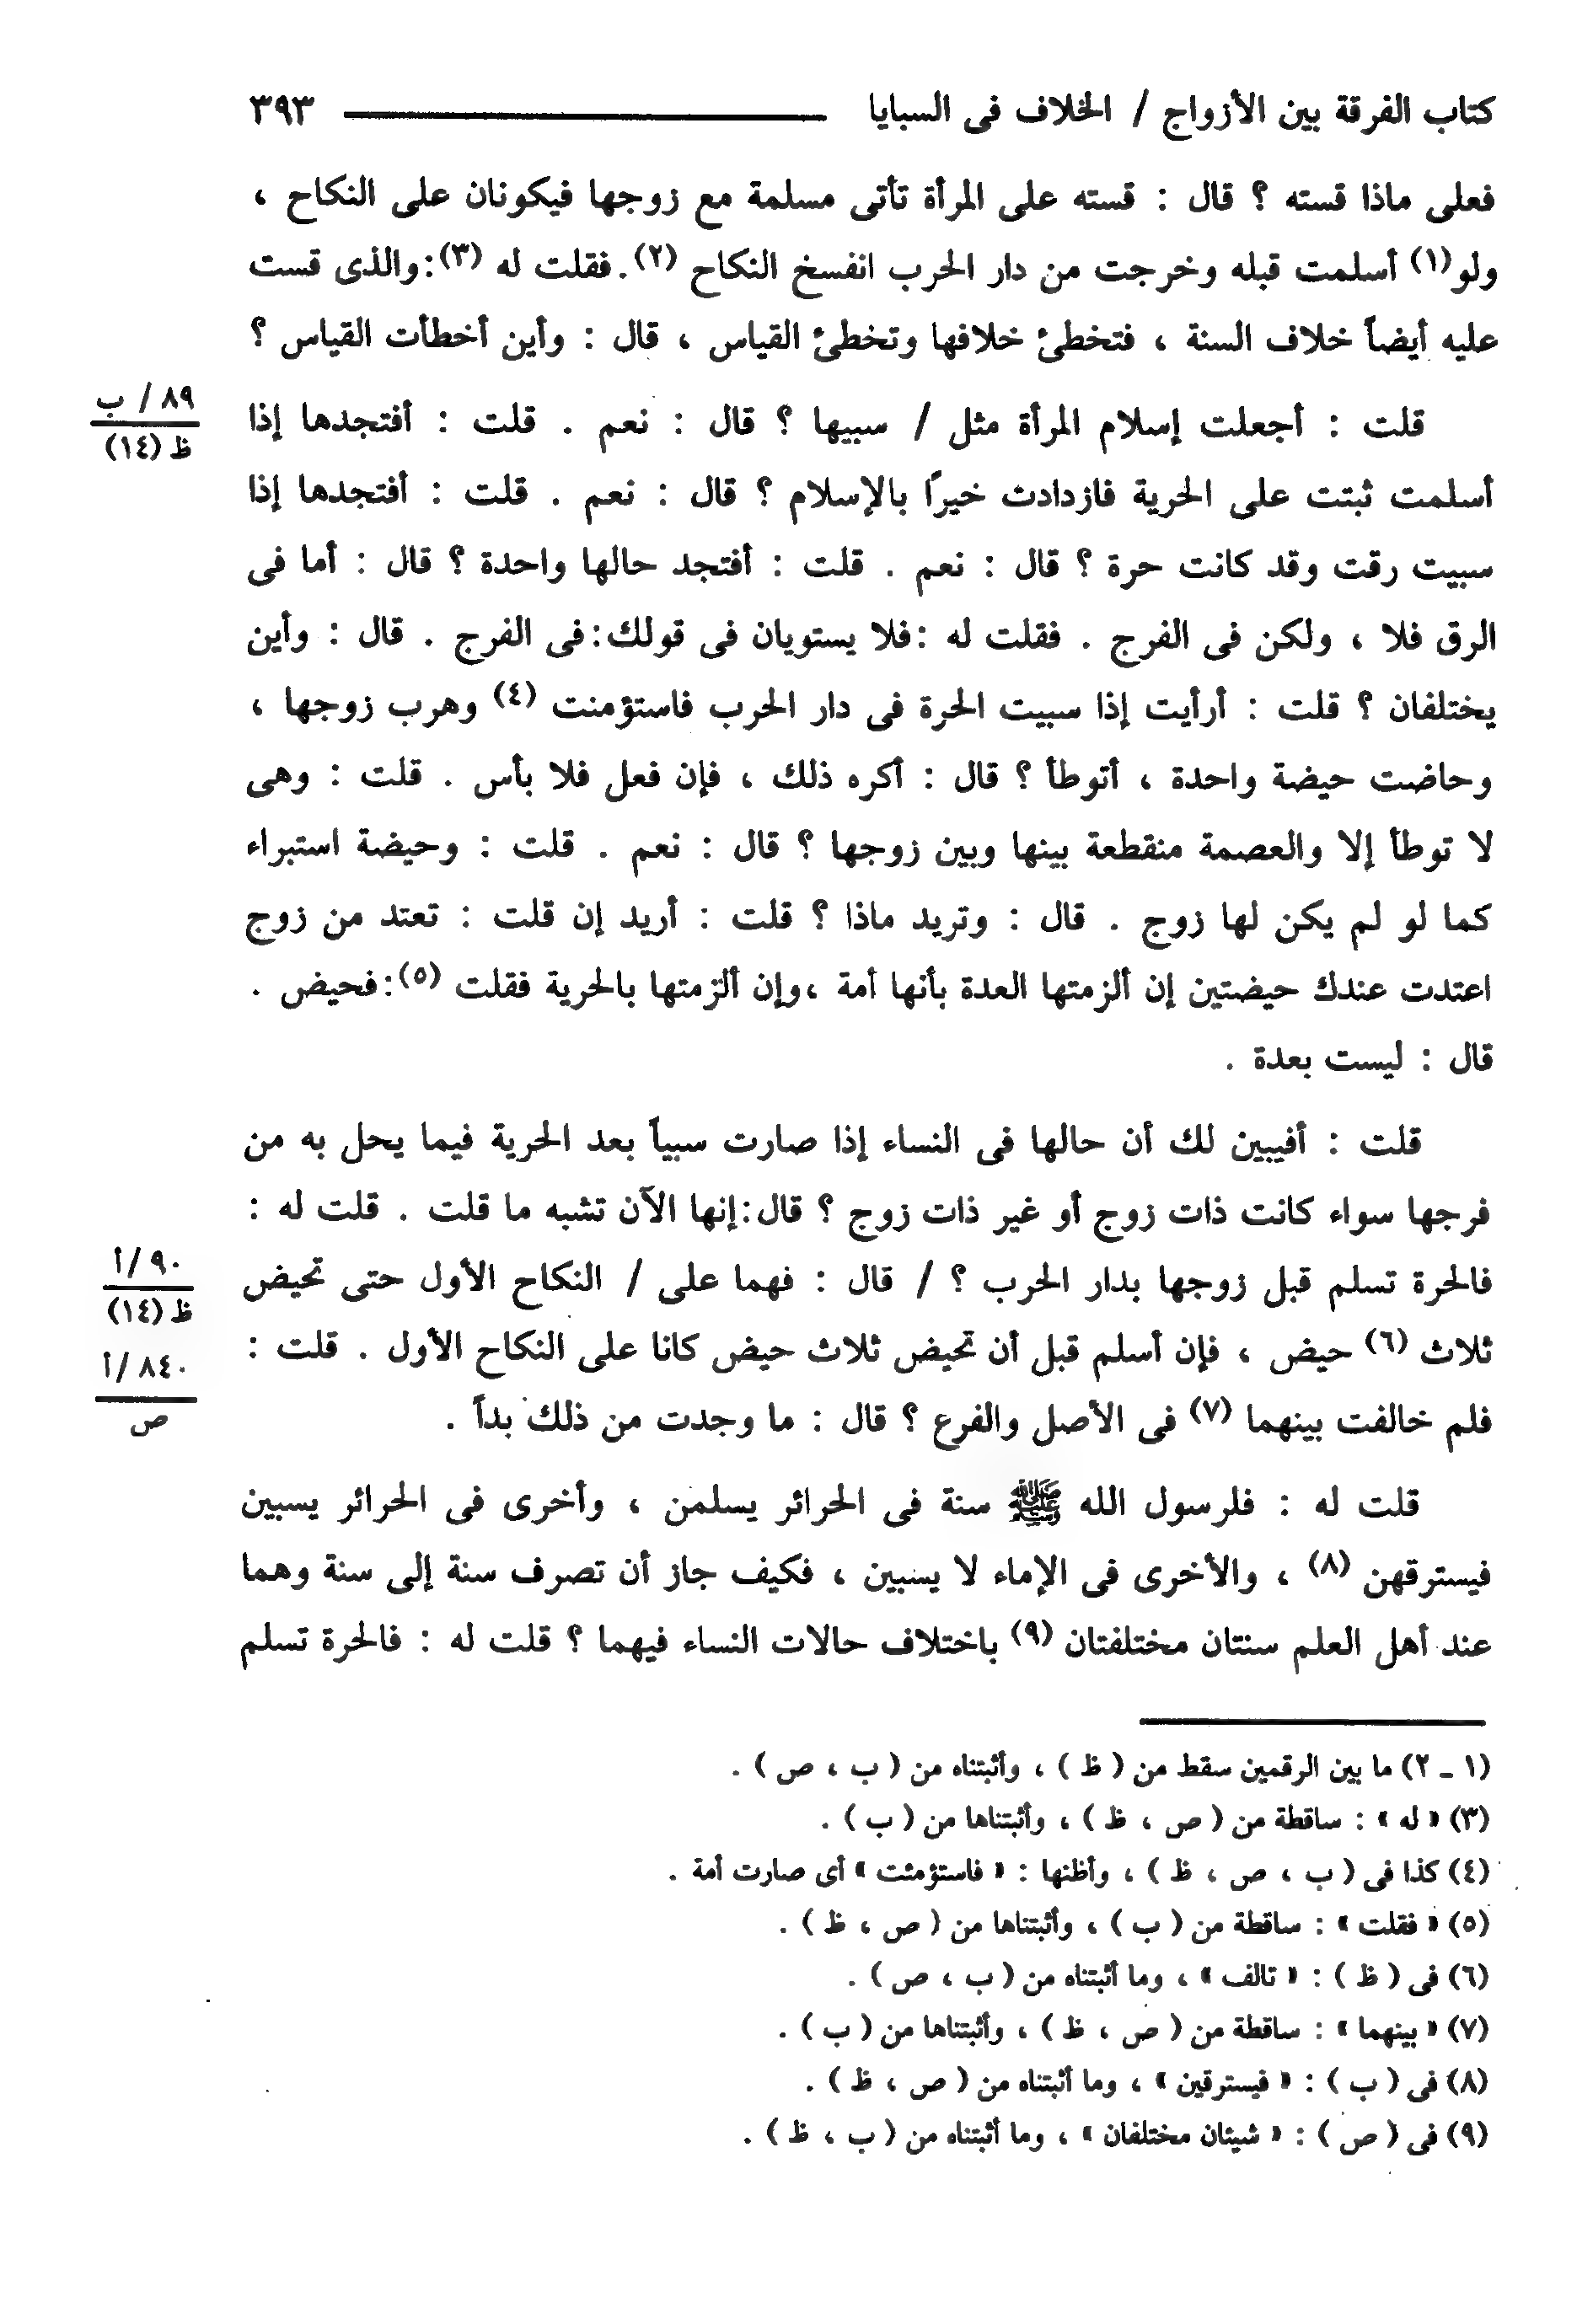 كتاب الفرقة بين الأزواج / الخلاف فى السبايا ــــــــ ٣٩٣
فعلى ماذا قسته ؟ قال : قسته على المرأة تأتى مسلمة مع زوجها فيكونان على النكاح ،
ولو(١) أسلمت قبله وخرجت من دار الحرب انفسخ النكاح (٢).فقلت له (٣):والذى قست
عليه أيضاً خلاف السنة ، فتخطئ خلافها وتخطئ القياس ، قال : وأين أخطأت القياس ؟
٨٩ / ب
ظ (١٤)
قلت : أجعلت إسلام المرأة مثل / سبيها ؟ قال : نعم . قلت : أفتجدها إذا
أسلمت ثبتت على الحرية فازدادت خيرًا بالإسلام ؟ قال : نعم . قلت : أفتجدها إذا
سبيت رقت وقد كانت حرة ؟ قال : نعم . قلت : أفتجد حالها واحدة ؟ قال : أما فى
الرق فلا ، ولكن فى الفرج . فقلت له :فلا يستويان فى قولك:فى الفرج . قال : وأين
يختلفان ؟ قلت : أرأيت إذا سبيت الحرة فى دار الحرب فاستؤمنت (٤) وهرب زوجها ،
وحاضت حيضة واحدة ، أتوطأ ؟ قال : أكره ذلك ، فإن فعل فلا بأس . قلت : وهى
لا توطأ إلا والعصمة منقطعة بينها وبين زوجها ؟ قال : نعم . قلت : وحيضة استبراء
كما لو لم يكن لها زوج . قال : وتريد ماذا ؟ قلت : أريد إن قلت : تعتد من زوج
اعتدت عندك حيضتين إن ألزمتها العدة بأنها أمة ،وإن ألزمتها بالحرية فقلت (٥):فحيض .
قال : ليست بعدة .
قلت : أفيبين لك أن حالها فى النساء إذا صارت سبياً بعد الحرية فيما يحل به من
فرجها سواء كانت ذات زوج أو غير ذات زوج ؟ قال:إنها الآن تشبه ما قلت . قلت له :
٩٠ /أ
ظ (١٤)
فالحرة تسلم قبل زوجها بدار الحرب ؟ / قال : فهما على / النكاح الأول حتى تحيض
٨٤٠ /أ
ص
ثلاث (٦) حيض ، فإن أسلم قبل أن تحيض ثلاث حيض كانا على النكاح الأول . قلت :
فلم خالفت بينهما (٧) فى الأصل والفرع ؟ قال : ما وجدت من ذلك بداً .
قلت له : فلرسول الله ﷺ سنة فى الحرائر يسلمن ، وأخرى فى الحرائر يسبين
فيسترقهن (٨) ، والأخرى فى الإماء لا يسبين ، فكيف جاز أن تصرف سنة إلى سنة وهما
عند أهل العلم سنتان مختلفتان (٩) باختلاف حالات النساء فيهما ؟ قلت له : فالحرة تسلم
(١ ـ ٢) ما بين الرقمين سقط من ( ظ ) ، وأثبتناه من ( ب ، ص ) .
(٣) « له » : ساقطة من ( ص ، ظ ) ، وأثبتناها من ( ب ) .
(٤) كذا فى ( ب ، ص ، ظ ) ، وأظنها : « فاستؤمئت » أى صارت أمة .
(٥) « فقلت » : ساقطة من ( ب ) ، وأثبتناها من ( ص ، ظ ) .
(٦) فى ( ظ ) : « تالف » ، وما أثبتناه من ( ب ، ص ) .
(٧) « بينهما » : ساقطة من ( ص ، ظ ) ، وأثبتناها من ( ب ) .
(٨) فى ( ب ) : « فيسترقين » ، وما أثبتناه من ( ص ، ظ ) .
(٩) فى ( ص ) : « شيئان مختلفان » ، وما أثبتناه من ( ب ، ظ ) .